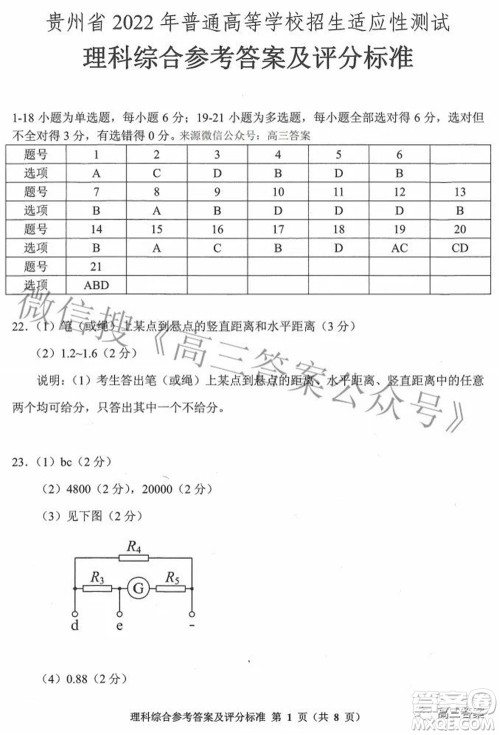 贵州省 2022 年普通高等学校招生适应性测试
理科综合参考答案及评分标准
1-18 小题为单选题，每小题 6 分；19-21 小题为多选题，每小题全部选对得 6 分，选对但
不全对得 3 分，有选错得 0 分。来源微信公众号：高三答案
题号 1 2 3 4 5 6
选项 A C D B D B
题号 7 8 9 10 11 12 13
选项 B A B D D D B
题号 14 15 16 17 18 19 20
选项 B A C B D AC CD
题号 21
选项 ABD
22.（1）笔（或绳）上某点到悬点的竖直距离和水平距离（3 分）
（2）1.2~1.6（2 分）
说明：（1）考生答出笔（或绳）上某点到悬点的距离、水平距离、竖直距离中的任意
两个均可给分，只答出其中一个不给分。
微信搜《高三答案公众号》
23.（1）bc（2 分）
（2）4800（2 分），20000（2 分）
（3）见下图（2 分）
R4
R3 G R5
d e -
（4）0.88（2 分）
理科综合参考答案及评分标准 第 1 页（共 8 页）
高三答案